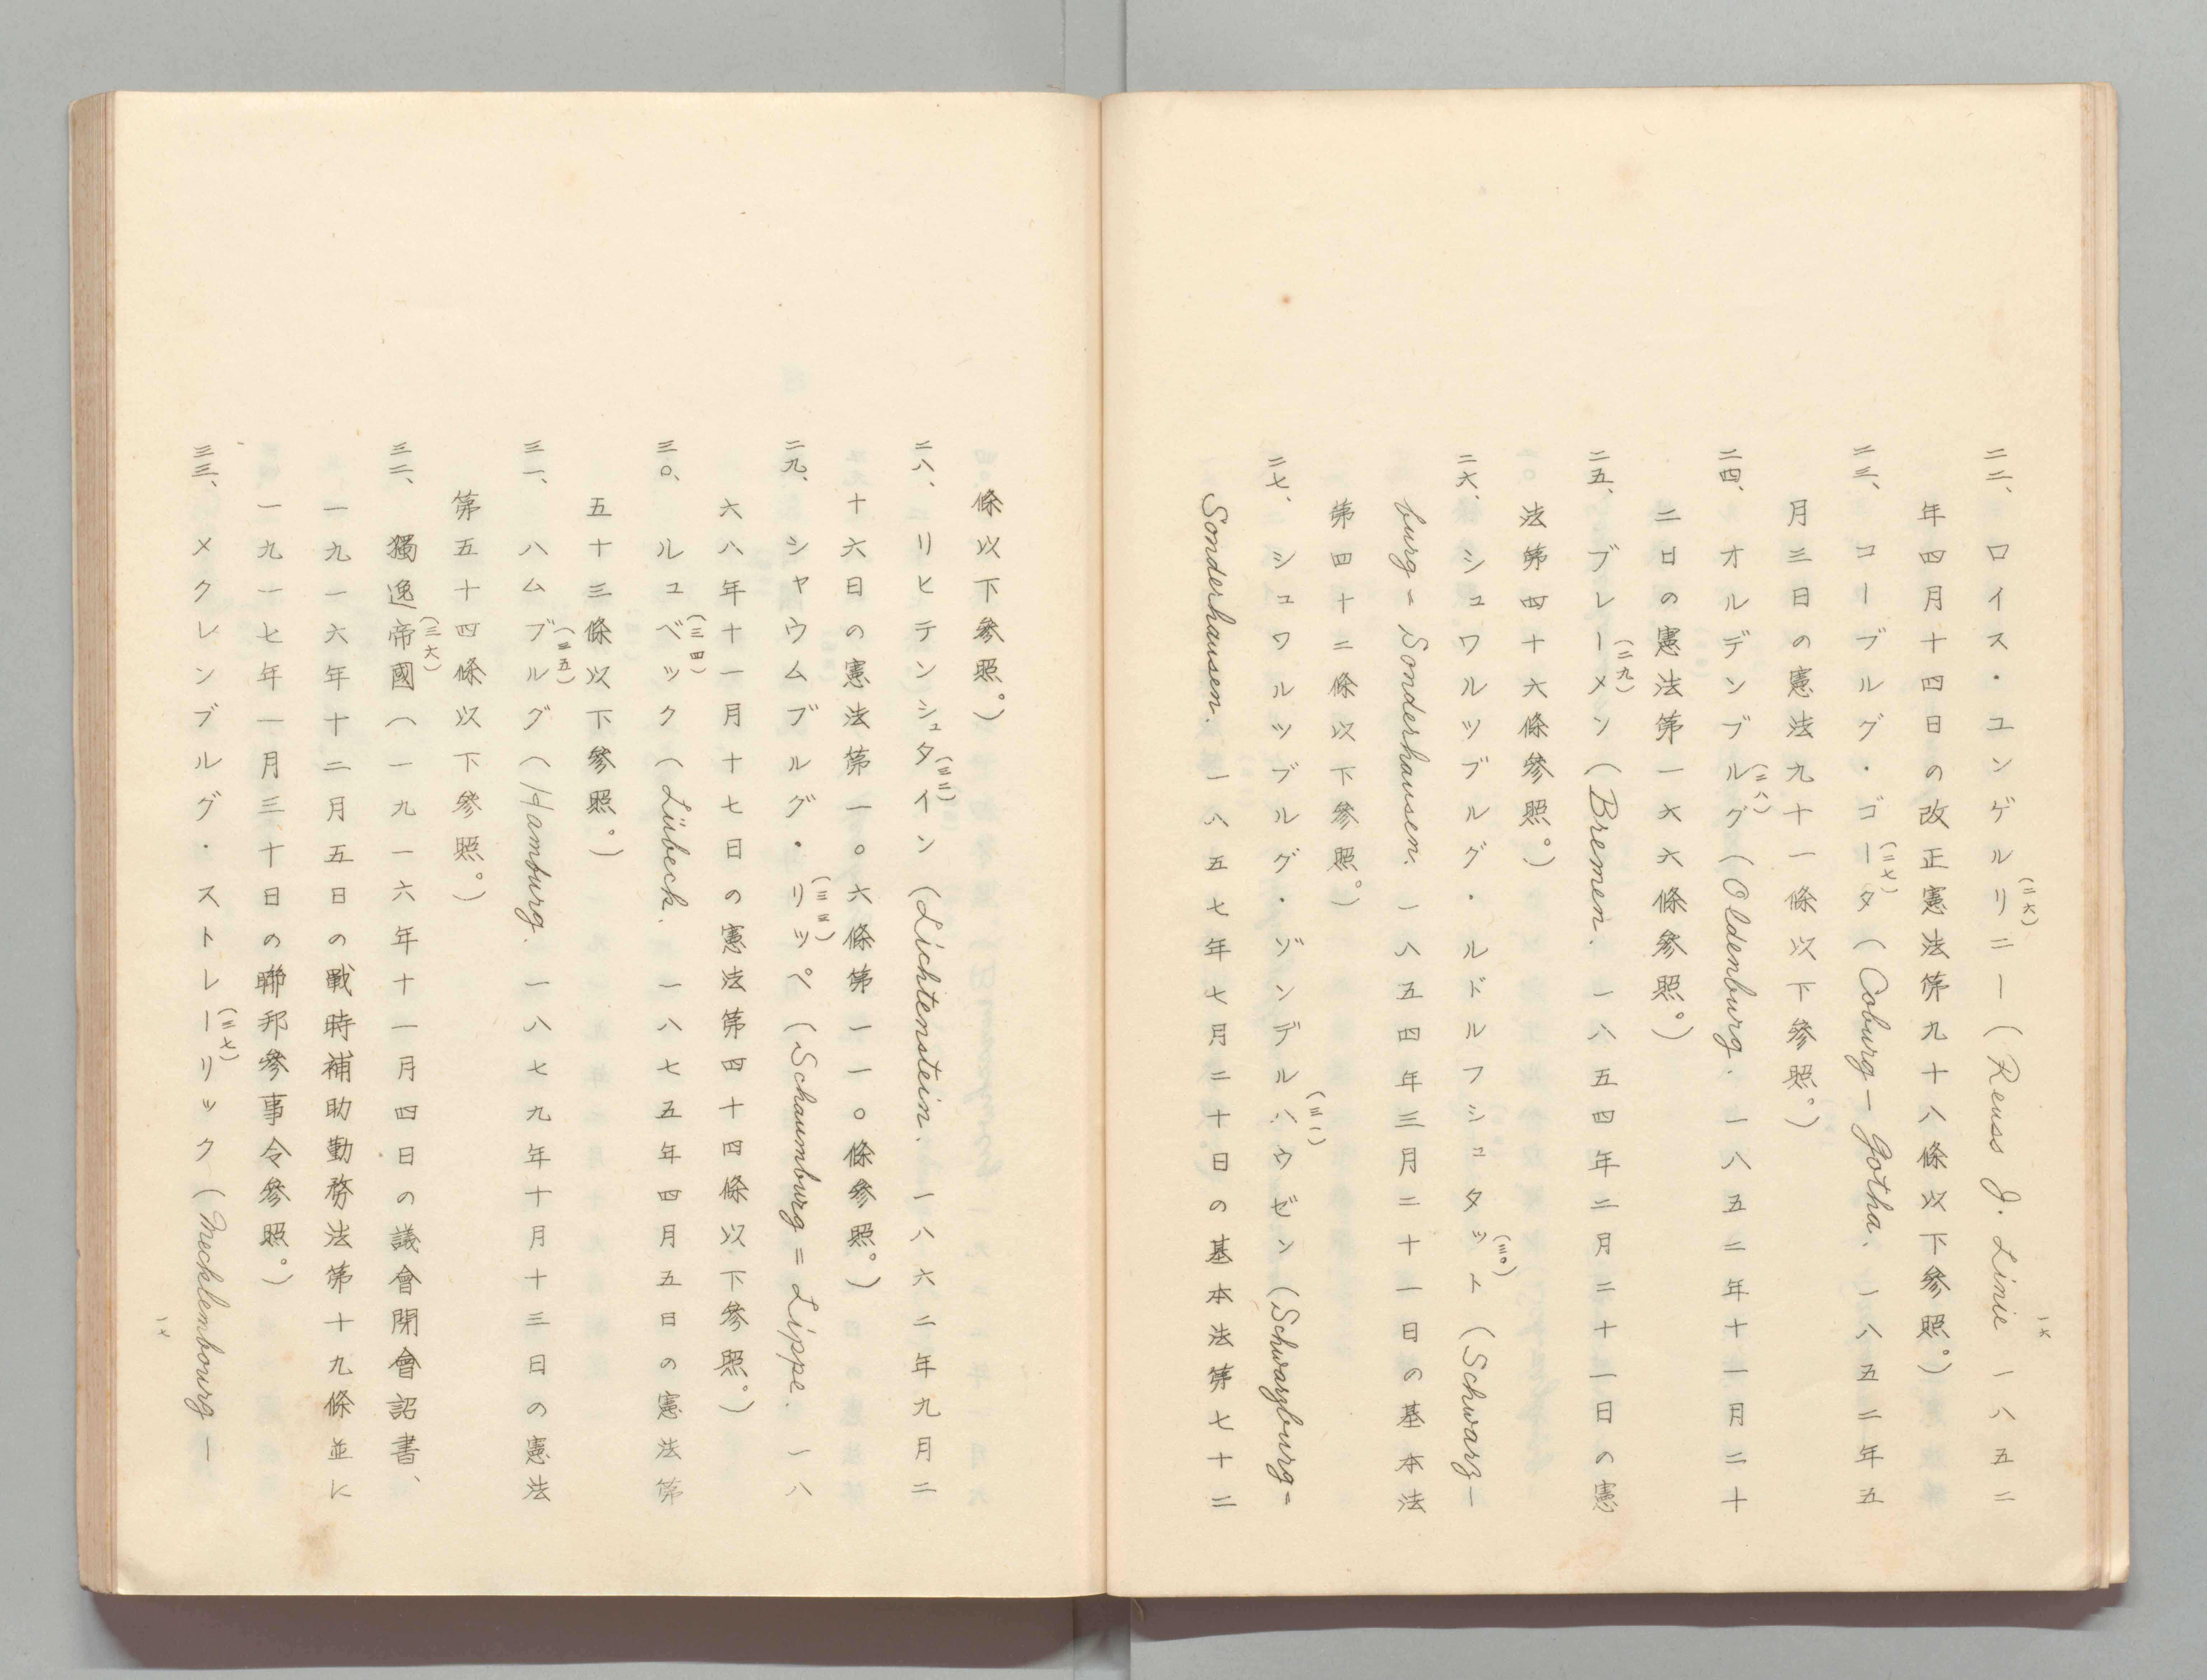 二二、ロイス・ユンゲルリニー（Reuss J. Linie 一八五二
(二六)
年四月十四日の改正憲法第九十八條以下參照。）
二三、コーブルグ・ゴータ（Coburg—Gotha. 一八五二年五
(二七)
月三日の憲法九十一條以下參照。）
二四、オルデンブルグ（Oldenburg. 一八五二年十一月二十
(二八)
二日の憲法第一六六條參照。）
二五、ブレーメン（Bremen. 一八五四年二月二十一日の憲
(二九)
法第四十六條參照。）
二六、シュワルツブルグ・ルドルフシュタット（Schwarz—
(三〇)
burg=Sonderhausen. 一八五四年三月二十一日の基本法
第四十二條以下參照。）
二七、シュワルツブルグ・ゾンデルハウゼン（Schwarzburg=
(三一)
Sonderhausen. 一八五七年七月二十日の基本法第七十二
一六
條以下參照。）
二八、リヒテンシュタイン（Lichtenstein. 一八六二年九月二
(三二)
十六日の憲法第一〇六條第一一〇條參照。）
二九、シャウムブルグ・リッペ（Schaumburg=Lippe. 一八
(三三)
六八年十一月十七日の憲法第四十四條以下參照。）
三〇、ルュベック（Lübeck. 一八七五年四月五日の憲法第
(三四)
五十三條以下參照。）
三一、ハムブルグ（Hamburg. 一八七九年十月十三日の憲法
(三五)
第五十四條以下參照。）
三二、獨逸帝國（一九一六年十一月四日の議會閉會詔書、
(三六)
一九一六年十二月五日の戰時補助勤務法第十九條並に
一九一七年一月三十日の聯邦參事令參照。）
三三、メクレンブルグ・ストレーリック（Mecklembourg—
(三七)
一七